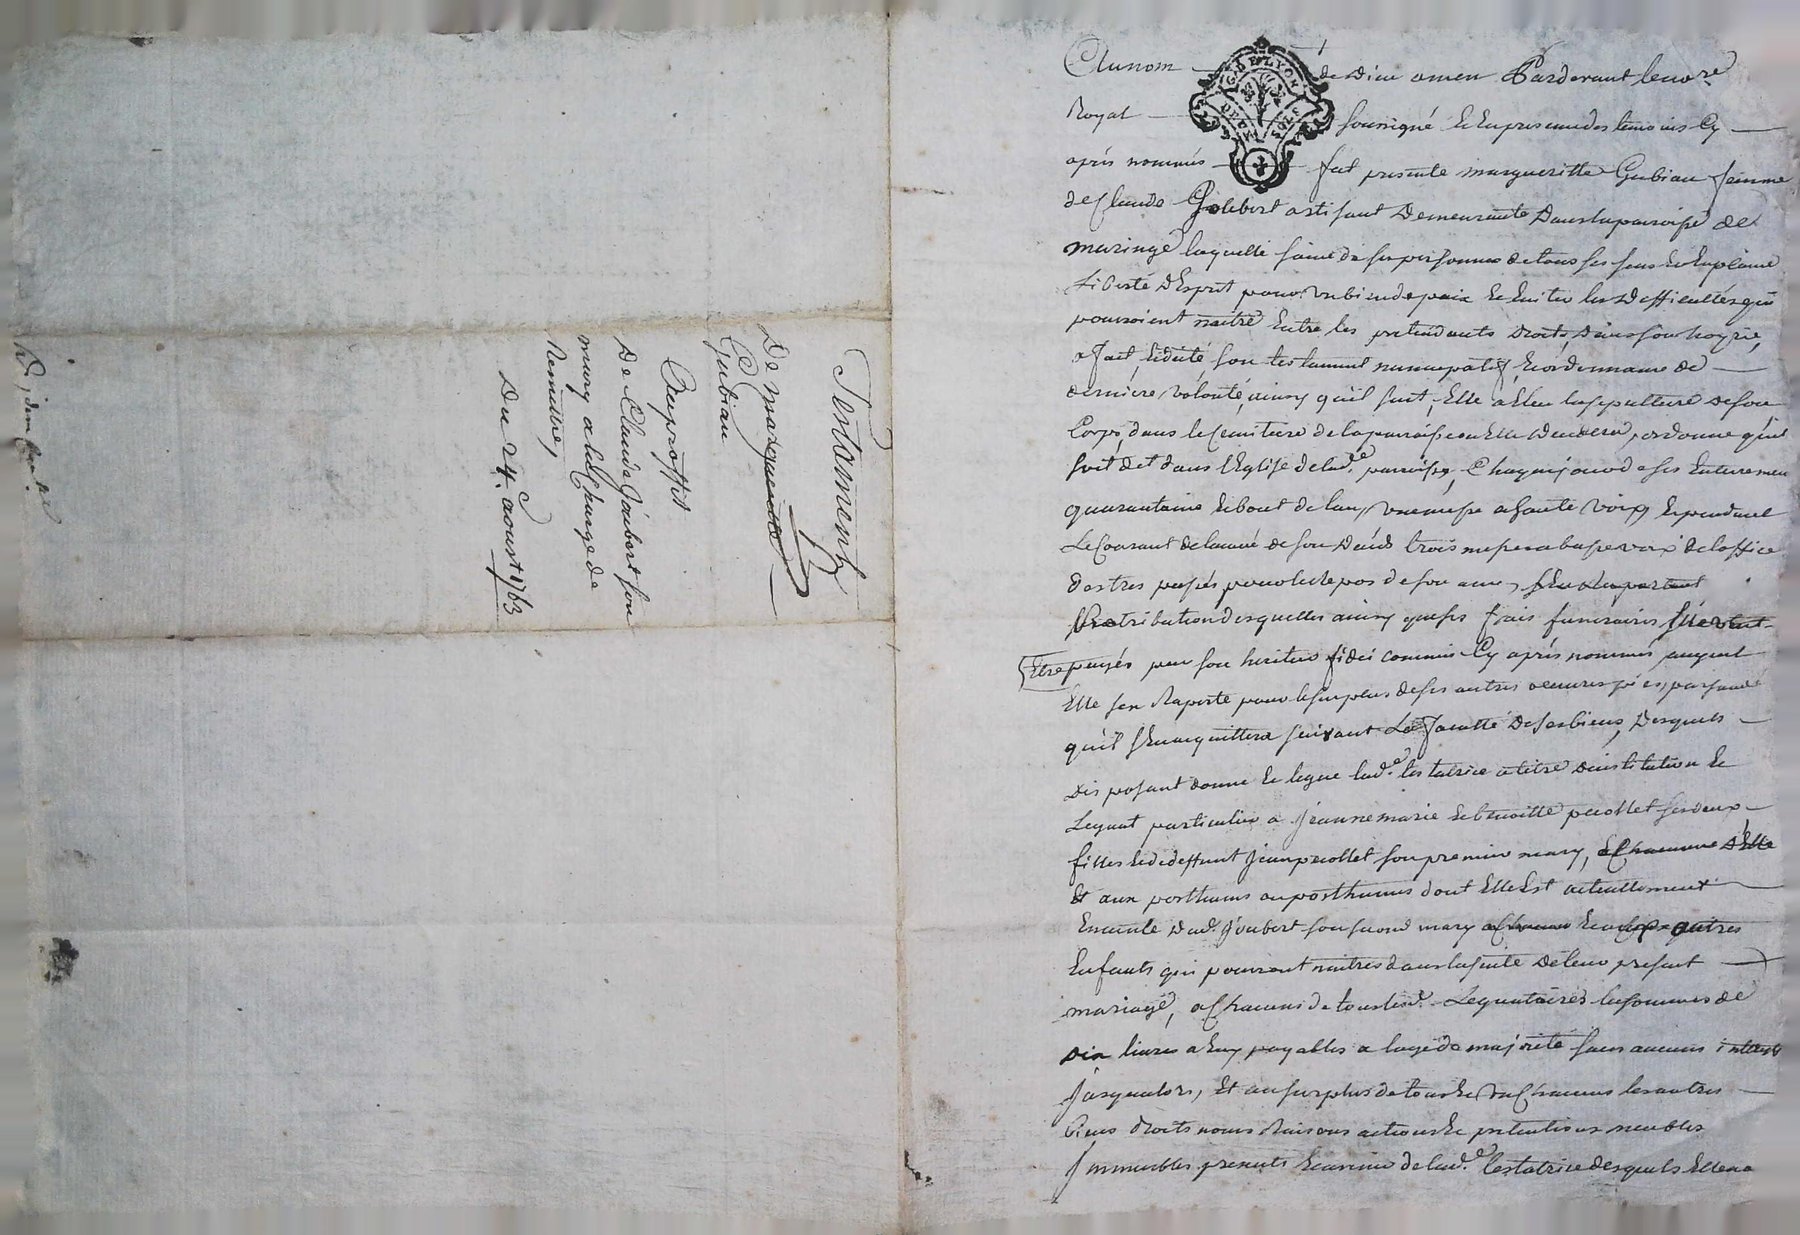 Testament
De margueritte
Gubian
Auproffit
De Claude Joubert son
mary a la Charge de
Remettre,
Du 24e. aoust 1763
Au nom de Dieu amen Pardevant le no.re
Royal soussigné Et En presence des temoins Cy
après nommés fut presente margueritte Gubian femme
de Claude Joubert artisant Demeurante Dans la paroisse de
maringe laquelle saine de sa personne de tous ses sens Et En plaine
Liberté D'Esprit pour un bien de paix Et Eviter les Difficultés qui
pourroient naitre Entre les pretendants Droits Dans son hoyrie,
a fait, Et dicté son testament nuncupatif, Et ordonnance de
derniere volonté, ainsy qu'il suit, Elle a Eleu la sepulture de son
Corps, dans le Cemitiere de la parroisse ou Elle Decedera, ordonne qu'il
soit dit dans l'Eglise de lad.e parroisse, Chaque jour de ses Enterrement
quarantaine Et bout de l'an, une messe a haute voix, Et pendant
Le Courant de l'année de son Décés trois messes a basse voix de l'office
des tres passés pour le repos de son ame,
Retribution desquelles ainsy que ses frais funeraires
Etre payés par son heritier fidei commis Cy après nommé,
Elle s'en Raporte pour le surplus de ses autres oeuvres pies,
qu'il s'En acquittera suivant La Faculté De ses biens, Desquels
Disposant donne Et legue lad.e testatrice a titre D'institution Et
Legat particulier a Jeanne marie Et benoitte peollet ses deux
filles Et de deffunt Jean peollet son premier mary, a Chacune D'Elle
Et aux posthumes ou posthumes dont Elle Est actuellement
Enceinte Dud. Joubert son second mary Et autres
Enfants qui pourront naitres dans la suite De leur present
mariage, a Chacuns de tous lesd. Legataires la somme de
Dix livres a Eux payables a l'age de majorité sans aucuns interets
Jusqu'alors, Et au surplus de tous Et un Chacuns les autres
biens droits noms Raisons actions Et pretentions meubles
Jmmeubles presents Et avenir de lad.e testatrice desquels Elle na